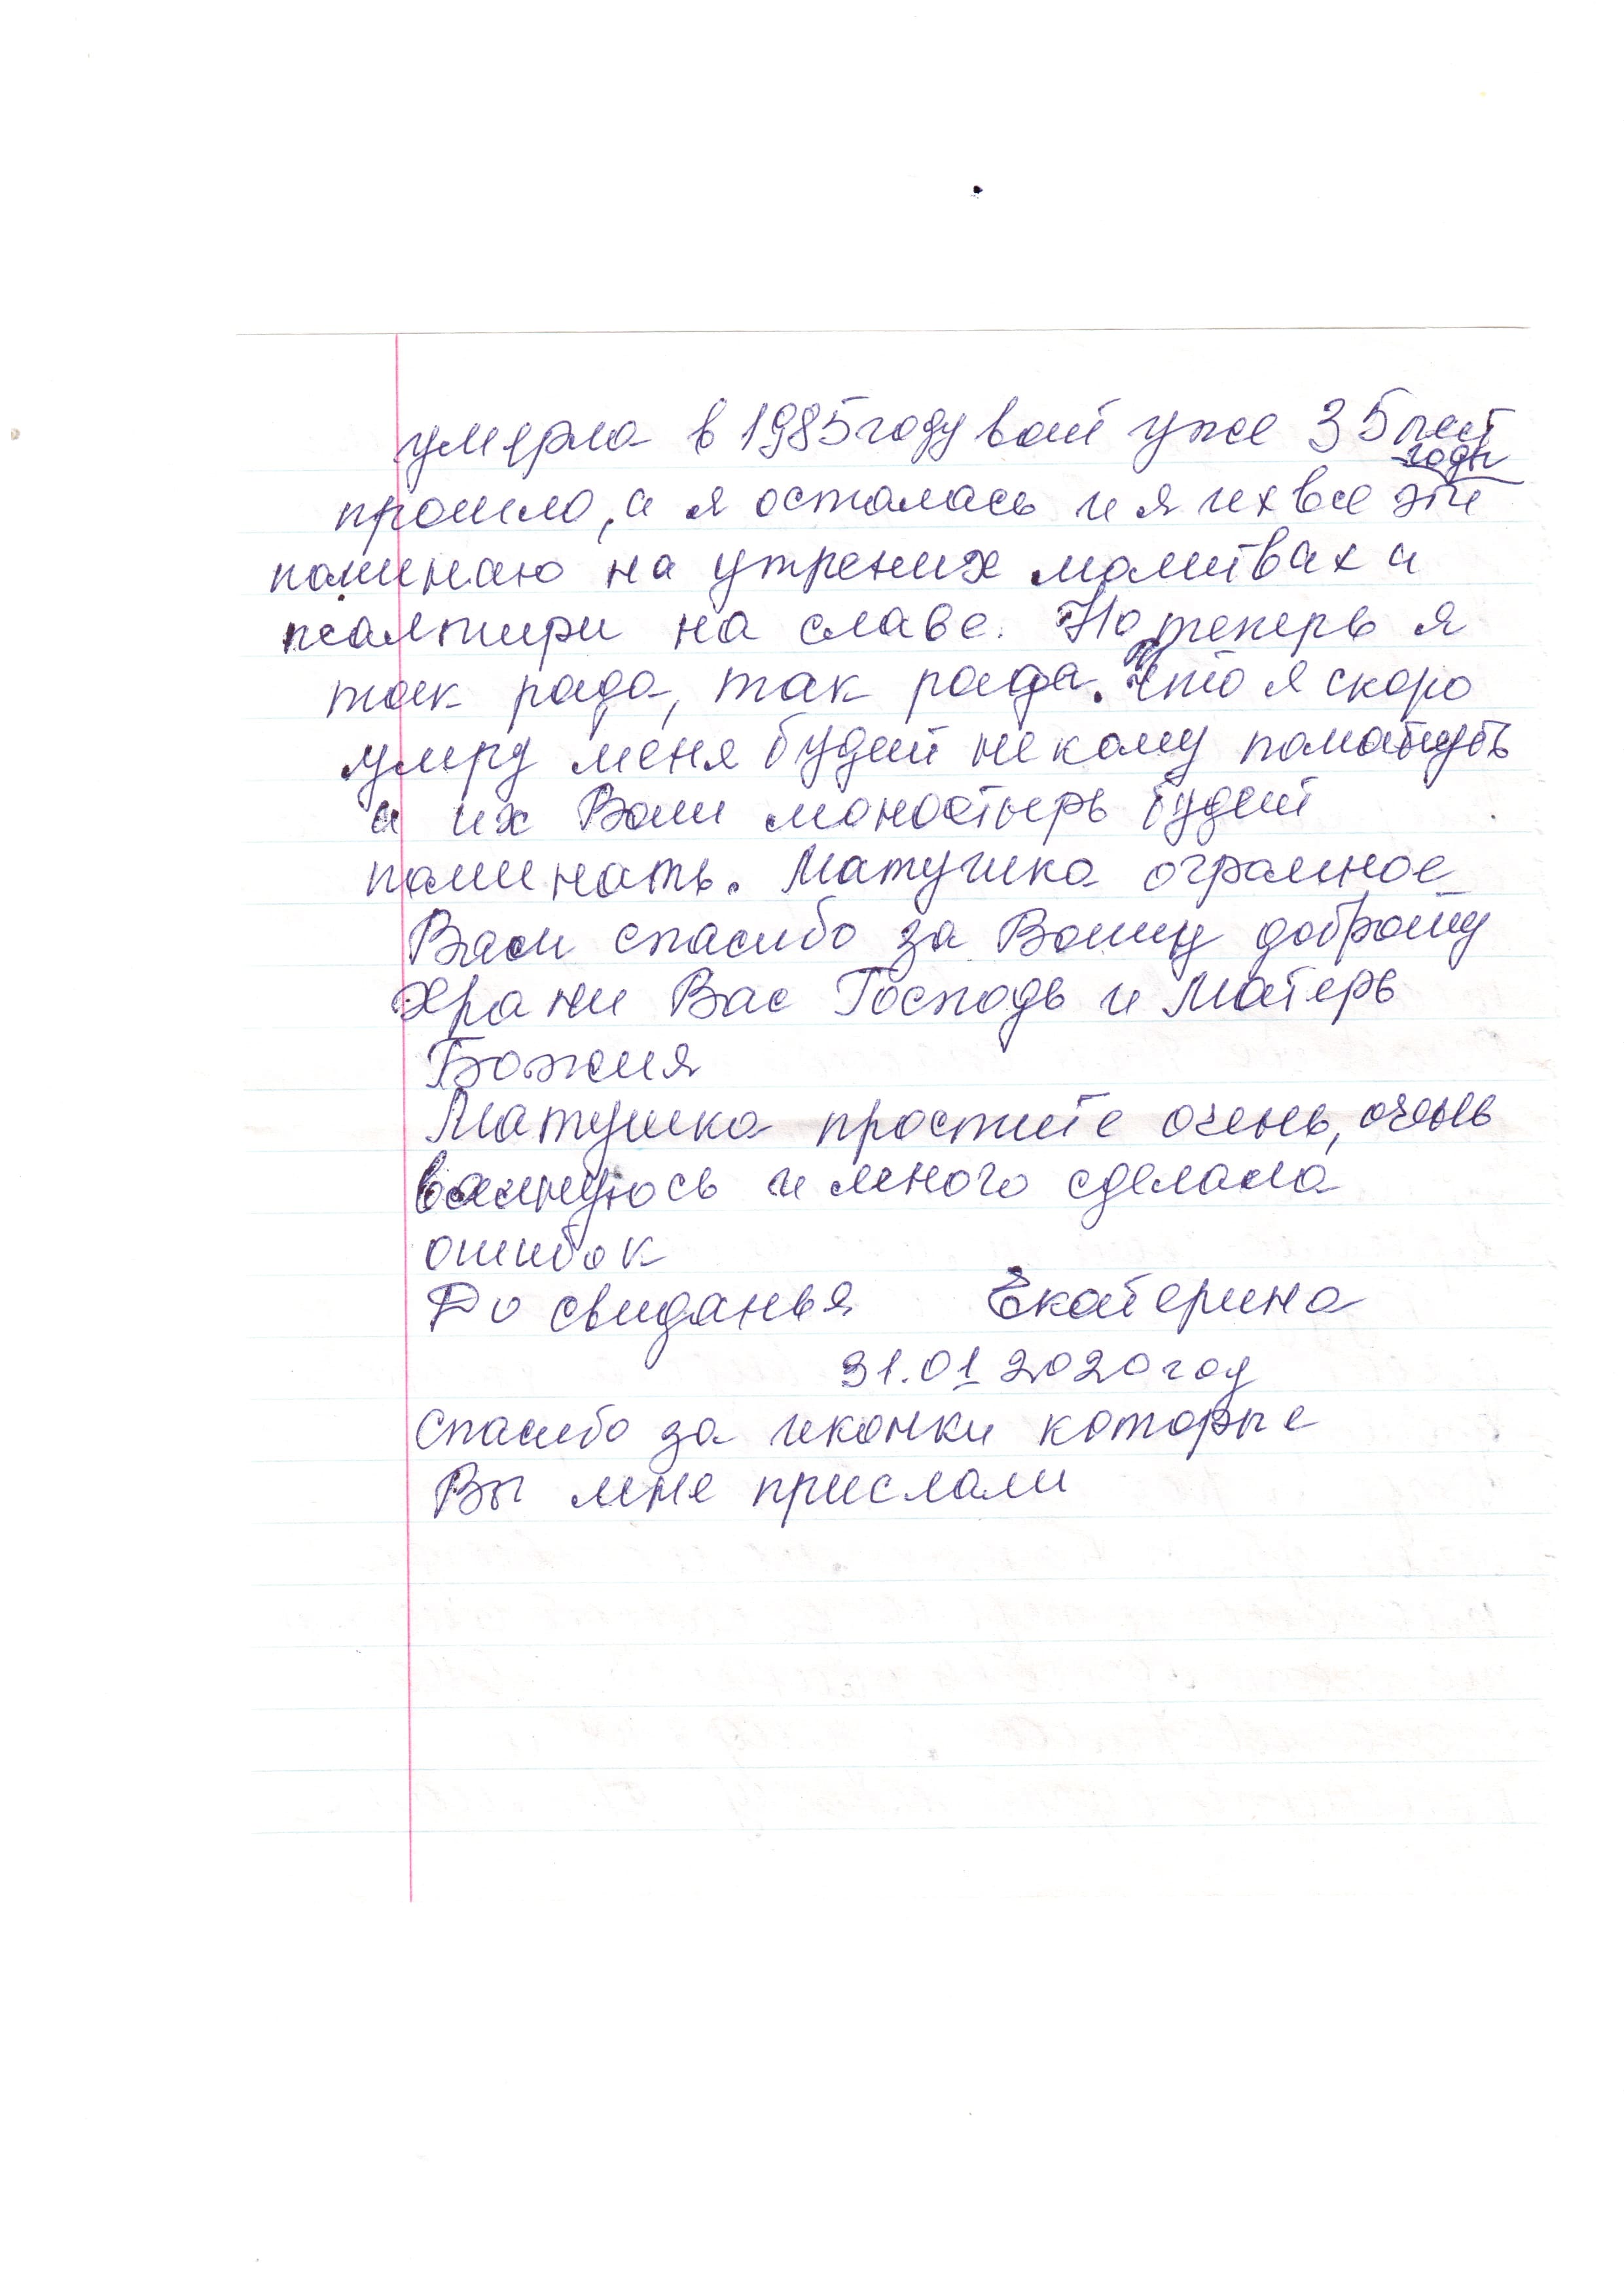 умерла в 1985 году вот уже 35 лет
годы
прошло, а я осталась и я их все эти
поминаю на утрених молитвах и
псалтири на славе. Но теперь я
так рада, так рада. Что я скоро
умру меня будет некому помянуть
а их Ваш моностырь будет
поминать. Матушка огромное
Вам спасибо за Вашу доброту
Храни Вас Господь и Матерь
Божия
Матушка простите очень, очень
валнуюсь и много сделала
ошибок
До свиданья Екатерина
31.01 2020 год
Спасибо за иконки которые
Вы мне прислали